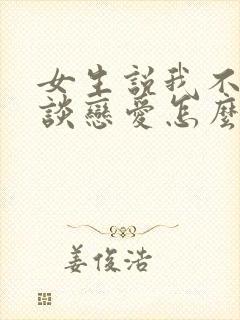 女生説我不
談戀愛怎麼
姜俊浩